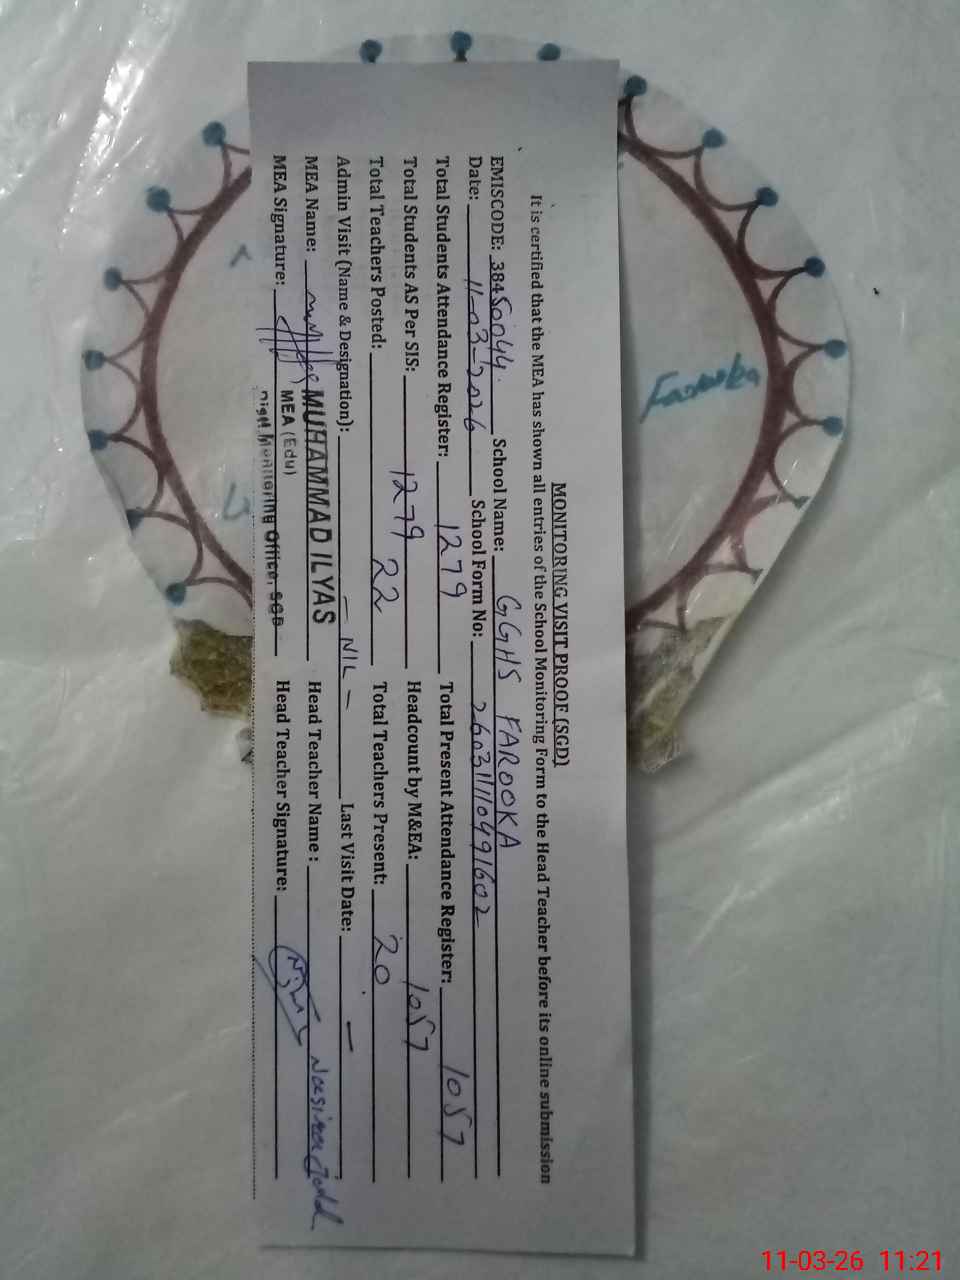 MONITORING VISIT PROOF (SGD)
It is certified that the MEA has shown all entries of the School Monitoring Form to the Head Teacher before its online submission
EMISCODE: 38450044 School Name: GGHS FAROOKA
Date: 11-03-2026 School Form No: 26031110491602
Total Students Attendance Register: 1279 Total Present Attendance Register: 1057
Total Students AS Per SIS: 1279 Headcount by M&EA: 1057
Total Teachers Posted: 22 Total Teachers Present: 20
Admin Visit (Name & Designation): - NIL - Last Visit Date: -
MEA Name: MUHAMMAD ILYAS Head Teacher Name :
MEA (Edu)
MEA Signature: Head Teacher Signature:
Monitoring Office, SGD
Farooka
11-03-26 11:21